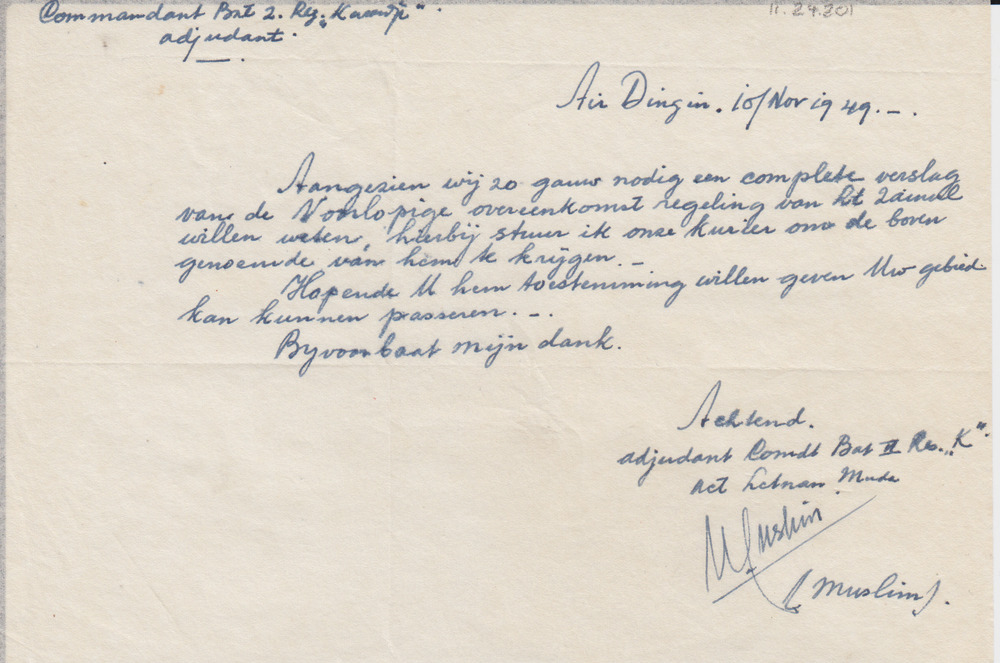 Commandant Bat 2. Reg. „Kawidji".
adjudant.
11.24.301
Air Dingin. 10/Nov 1949. _ .
Aangezien wij zo gauw nodig een complete verslag
van de Voorlopige overeenkomst regeling van ht Zainal
willen weten, hierbij stuur ik onze kurier om de boven
genoemde van hem te krijgen. _
Hopende U hem toestemming willen geven Uw gebied
kan kunnen passeren. _ .
Byvoorbaat mijn dank.
Achtend.
adjudant Comdt Bat II Re. „K".
Act Letnan Muda
Muslim
(Muslim).